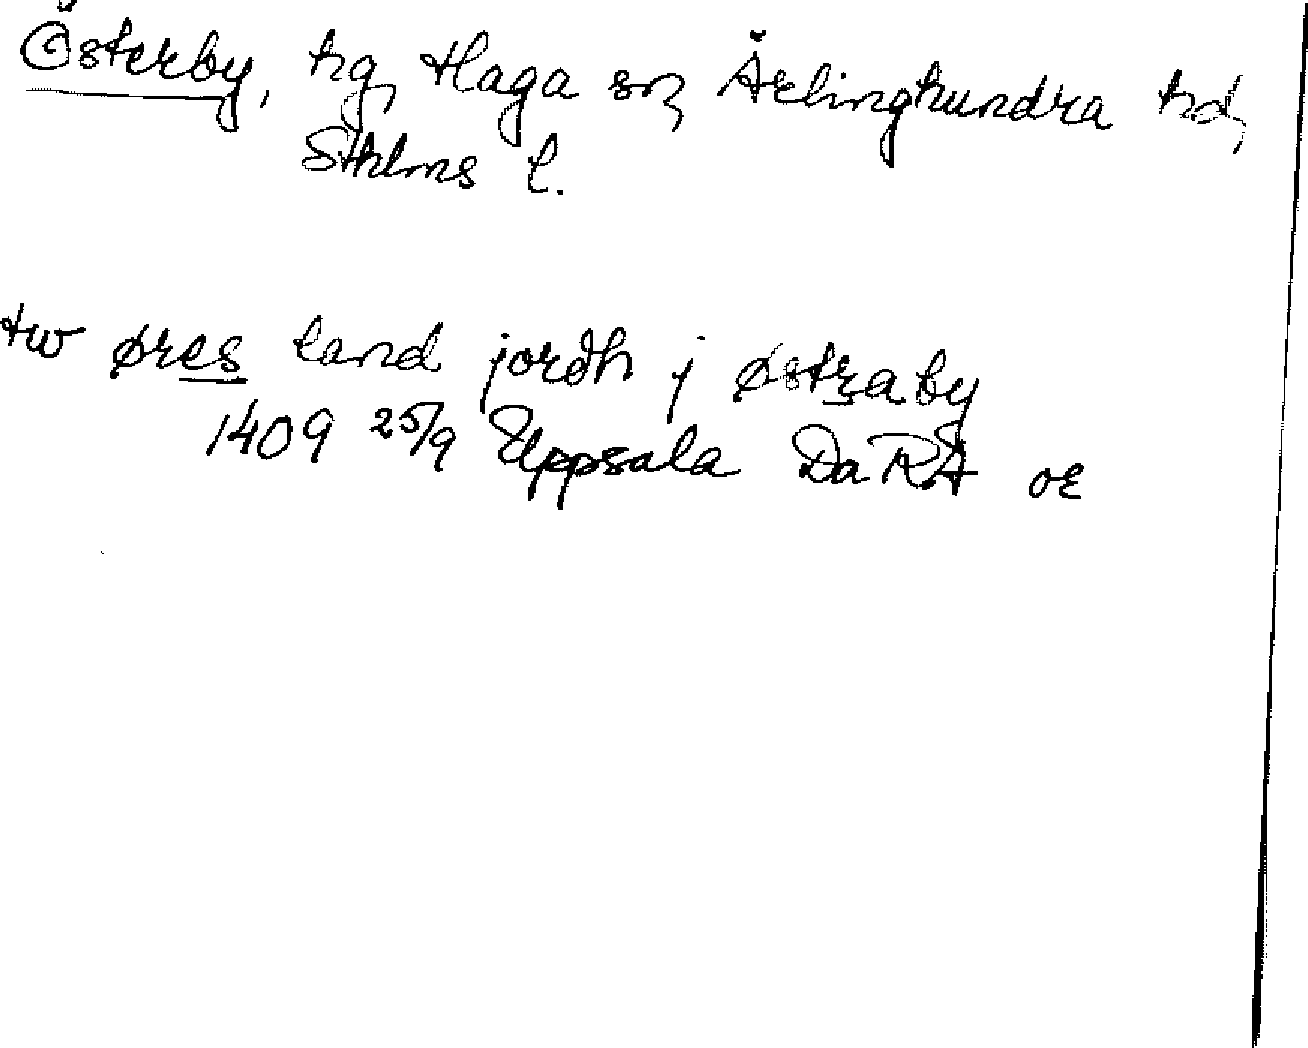 Österby, hg, Haga sn, Ärlinghundra hd,
Sthlms l.
tw øres land jordh j østraby
1409 25/9 Uppsala Da RA or